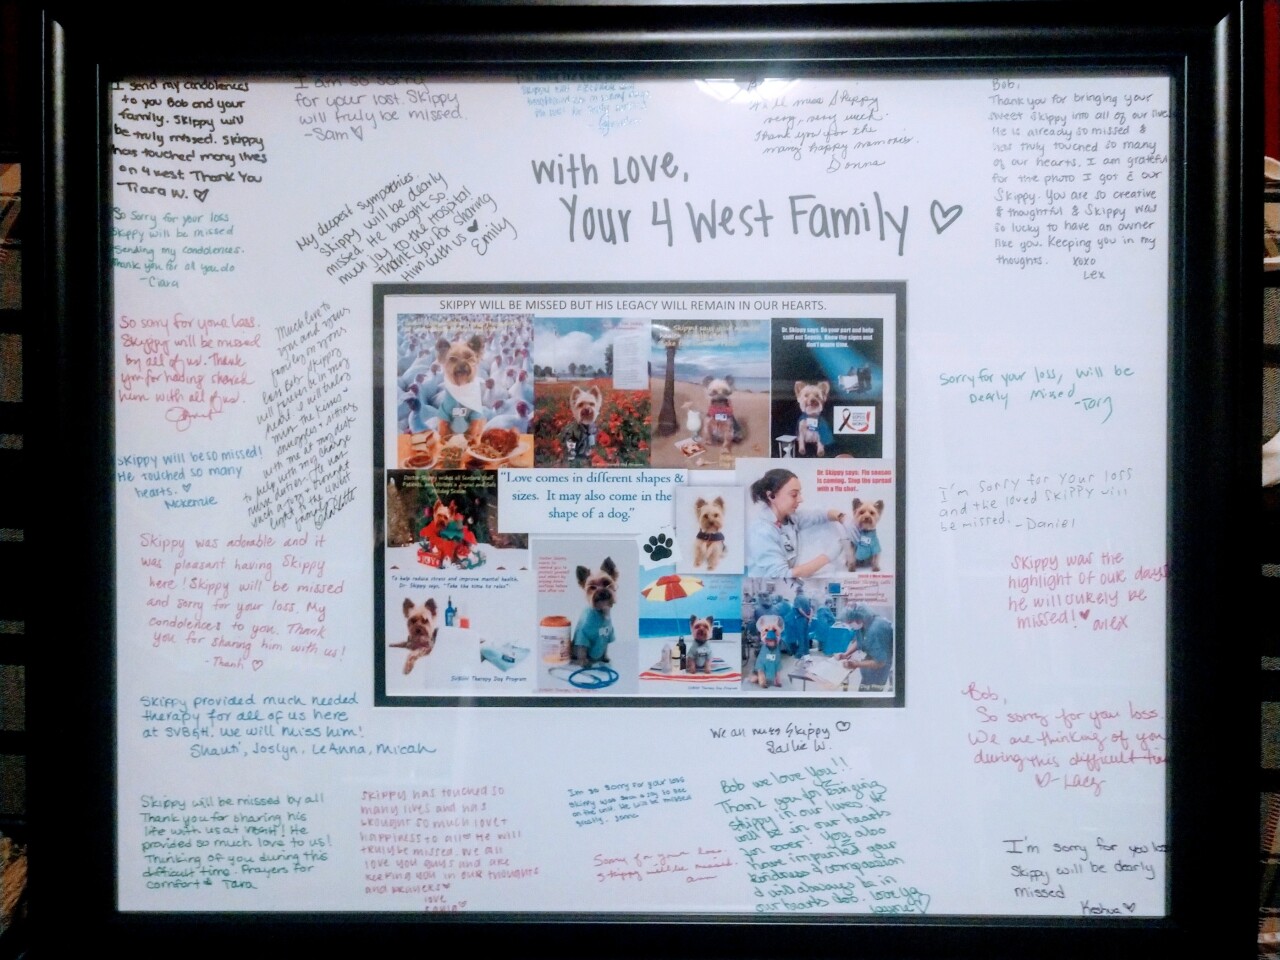 I send my condolences
to you Bob and your
family. Skippy will
be truly missed. Skippy
has touched many lives
on 4 west Thank You
Tiara W. ♡
I am so sorry
for your lost. Skippy
will truly be missed.
-Sam ♡
We'll miss Skippy
very, very much.
Thank you for the
many happy memories.
Donna
Bob,
Thank you for bringing your
sweet Skippy into all of our lives
He is already so missed &
has truly touched so many
of our hearts. I am grateful
for the photo I got c our
Skippy. You are so creative
& thoughtful & Skippy was
so lucky to have an owner
like you. Keeping you in my
thoughts. xoxo
Lex
With Love,
Your 4 West Family ♡
So sorry for your loss
Skippy will be missed
Sending my condolences.
Thank you for all you do
-Ciara
My deepest sympathies.
Skippy will be dearly
missed. He brought so
much joy to the hospital
Thank you for sharing
Him with us ♥
Emily
So sorry for your loss.
Skyppy will be missed
by all of us. Thank
you for having shared
him with all of us.
Much love to
you and your
family on your
loss Bob- Skippy
will forever be in my
heart. I will truly
miss the kisses-
snuggles & sitting
with me at my desk
to help with my charge
nurse duties. He has
brought
light to the 4 West
family
Skippy will be so missed!
He touched so many
hearts. ♡
McKenzie
Skippy was adorable and it
was pleasant having Skippy
here! Skippy will be missed
and sorry for your loss. My
condolences to you. Thank
you for sharing him with us!
-Thanh ♡
Skippy provided much needed
therapy for all of us here
at SVBGH. We will miss him!
Shauti, Joslyn, LeAnna, Micah
Skippy will be missed by all
Thank you for sharing his
life with us at VBGH! He
provided so much love to us!
Thinking of you during this
difficult time. Prayers for
comfort Tara
SKIPPY WILL BE MISSED BUT HIS LEGACY WILL REMAIN IN OUR HEARTS.
Dr. Skippy says: Do your part and help
sniff out Sepsis. Know the signs and
don't waste time.
"Love comes in different shapes &
sizes. It may also come in the
shape of a dog."
Dr. Skippy says: Flu season
is coming. Stop the spread
with a flu shot.
To help reduce stress and improve mental health,
Dr. Skippy says, "Take the time to relax".
SVBGH Therapy Dog Program
Sorry for your loss, will be
Dearly Missed
-Tory
I'm sorry for your loss
and the loved Skippy will
be missed. -Daniel
Skippy was the
highlight of our days
he will surely be
missed! ♥ alex
Bob,
So sorry for your loss
We are thinking of you
during this difficult
♡- Lacy
We all miss Skippy ♡
Sallie W.
Skippy has touched so
many lives and has
brought so much love +
happiness to all. He will
truly be missed. We all
love you guys and are
keeping you in our thoughts
and prayers ♥
love
I'm so sorry for your loss
Skippy was
on the unit. He will be missed
Sorry for your loss.
Skippy will be missed.
Bob we love you!!
Thank you for bringing
Skippy in our lives. He
will be in our hearts
for ever! You also
have imparted your
kindness & compassion
& will always be in
our hearts also. Love ya
I'm sorry for you loss
Skippy will be dearly
missed
Keshua ♡